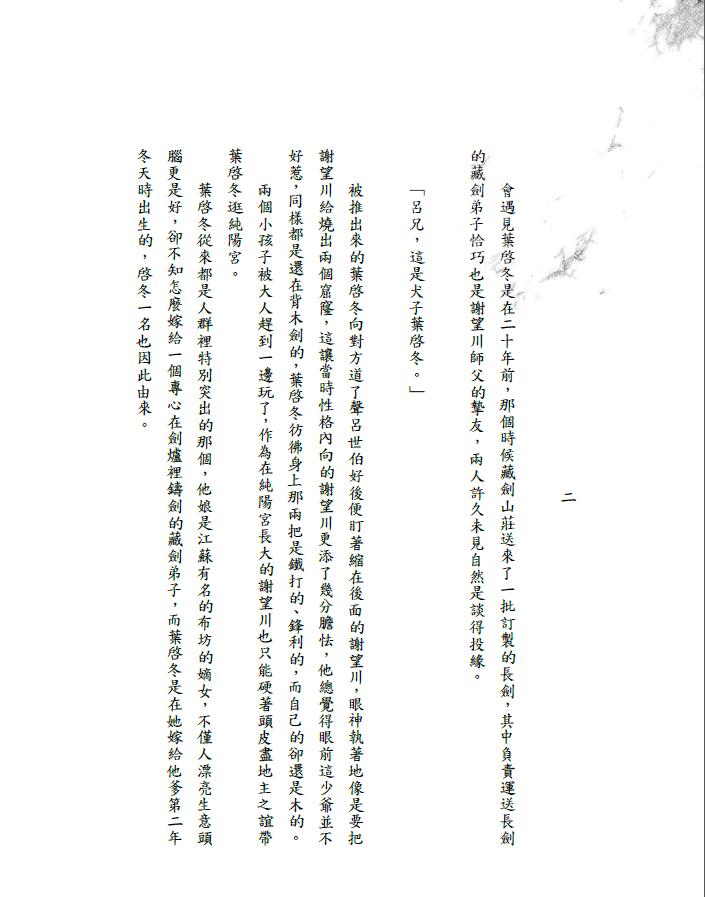 二
會遇見葉啓冬是在二十年前，那個時候藏劍山莊送來了一批訂製的長劍，其中負責運送長劍
的藏劍弟子恰巧也是謝望川師父的摯友，兩人許久未見自然是談得投緣。
「呂兄，這是犬子葉啓冬。」
被推出來的葉啓冬向對方道了聲呂世伯好後便盯著縮在後面的謝望川，眼神執著地像是要把
謝望川給燒出兩個窟窿，這讓當時性格內向的謝望川更添了幾分膽怯，他總覺得眼前這少爺並不
好惹，同樣都是還在背木劍的，葉啓冬彷彿身上那兩把是鐵打的、鋒利的，而自己的卻還是木的。
兩個小孩子被大人趕到一邊玩了，作為在純陽宮長大的謝望川也只能硬著頭皮盡地主之誼帶
葉啓冬逛純陽宮。
葉啓冬從來都是人群裡特別突出的那個，他娘是江蘇有名的布坊的嫡女，不僅人漂亮生意頭
腦更是好，卻不知怎麼嫁給一個專心在劍爐裡鑄劍的藏劍弟子，而葉啓冬是在她嫁給他爹第二年
冬天時出生的，啓冬一名也因此由來。